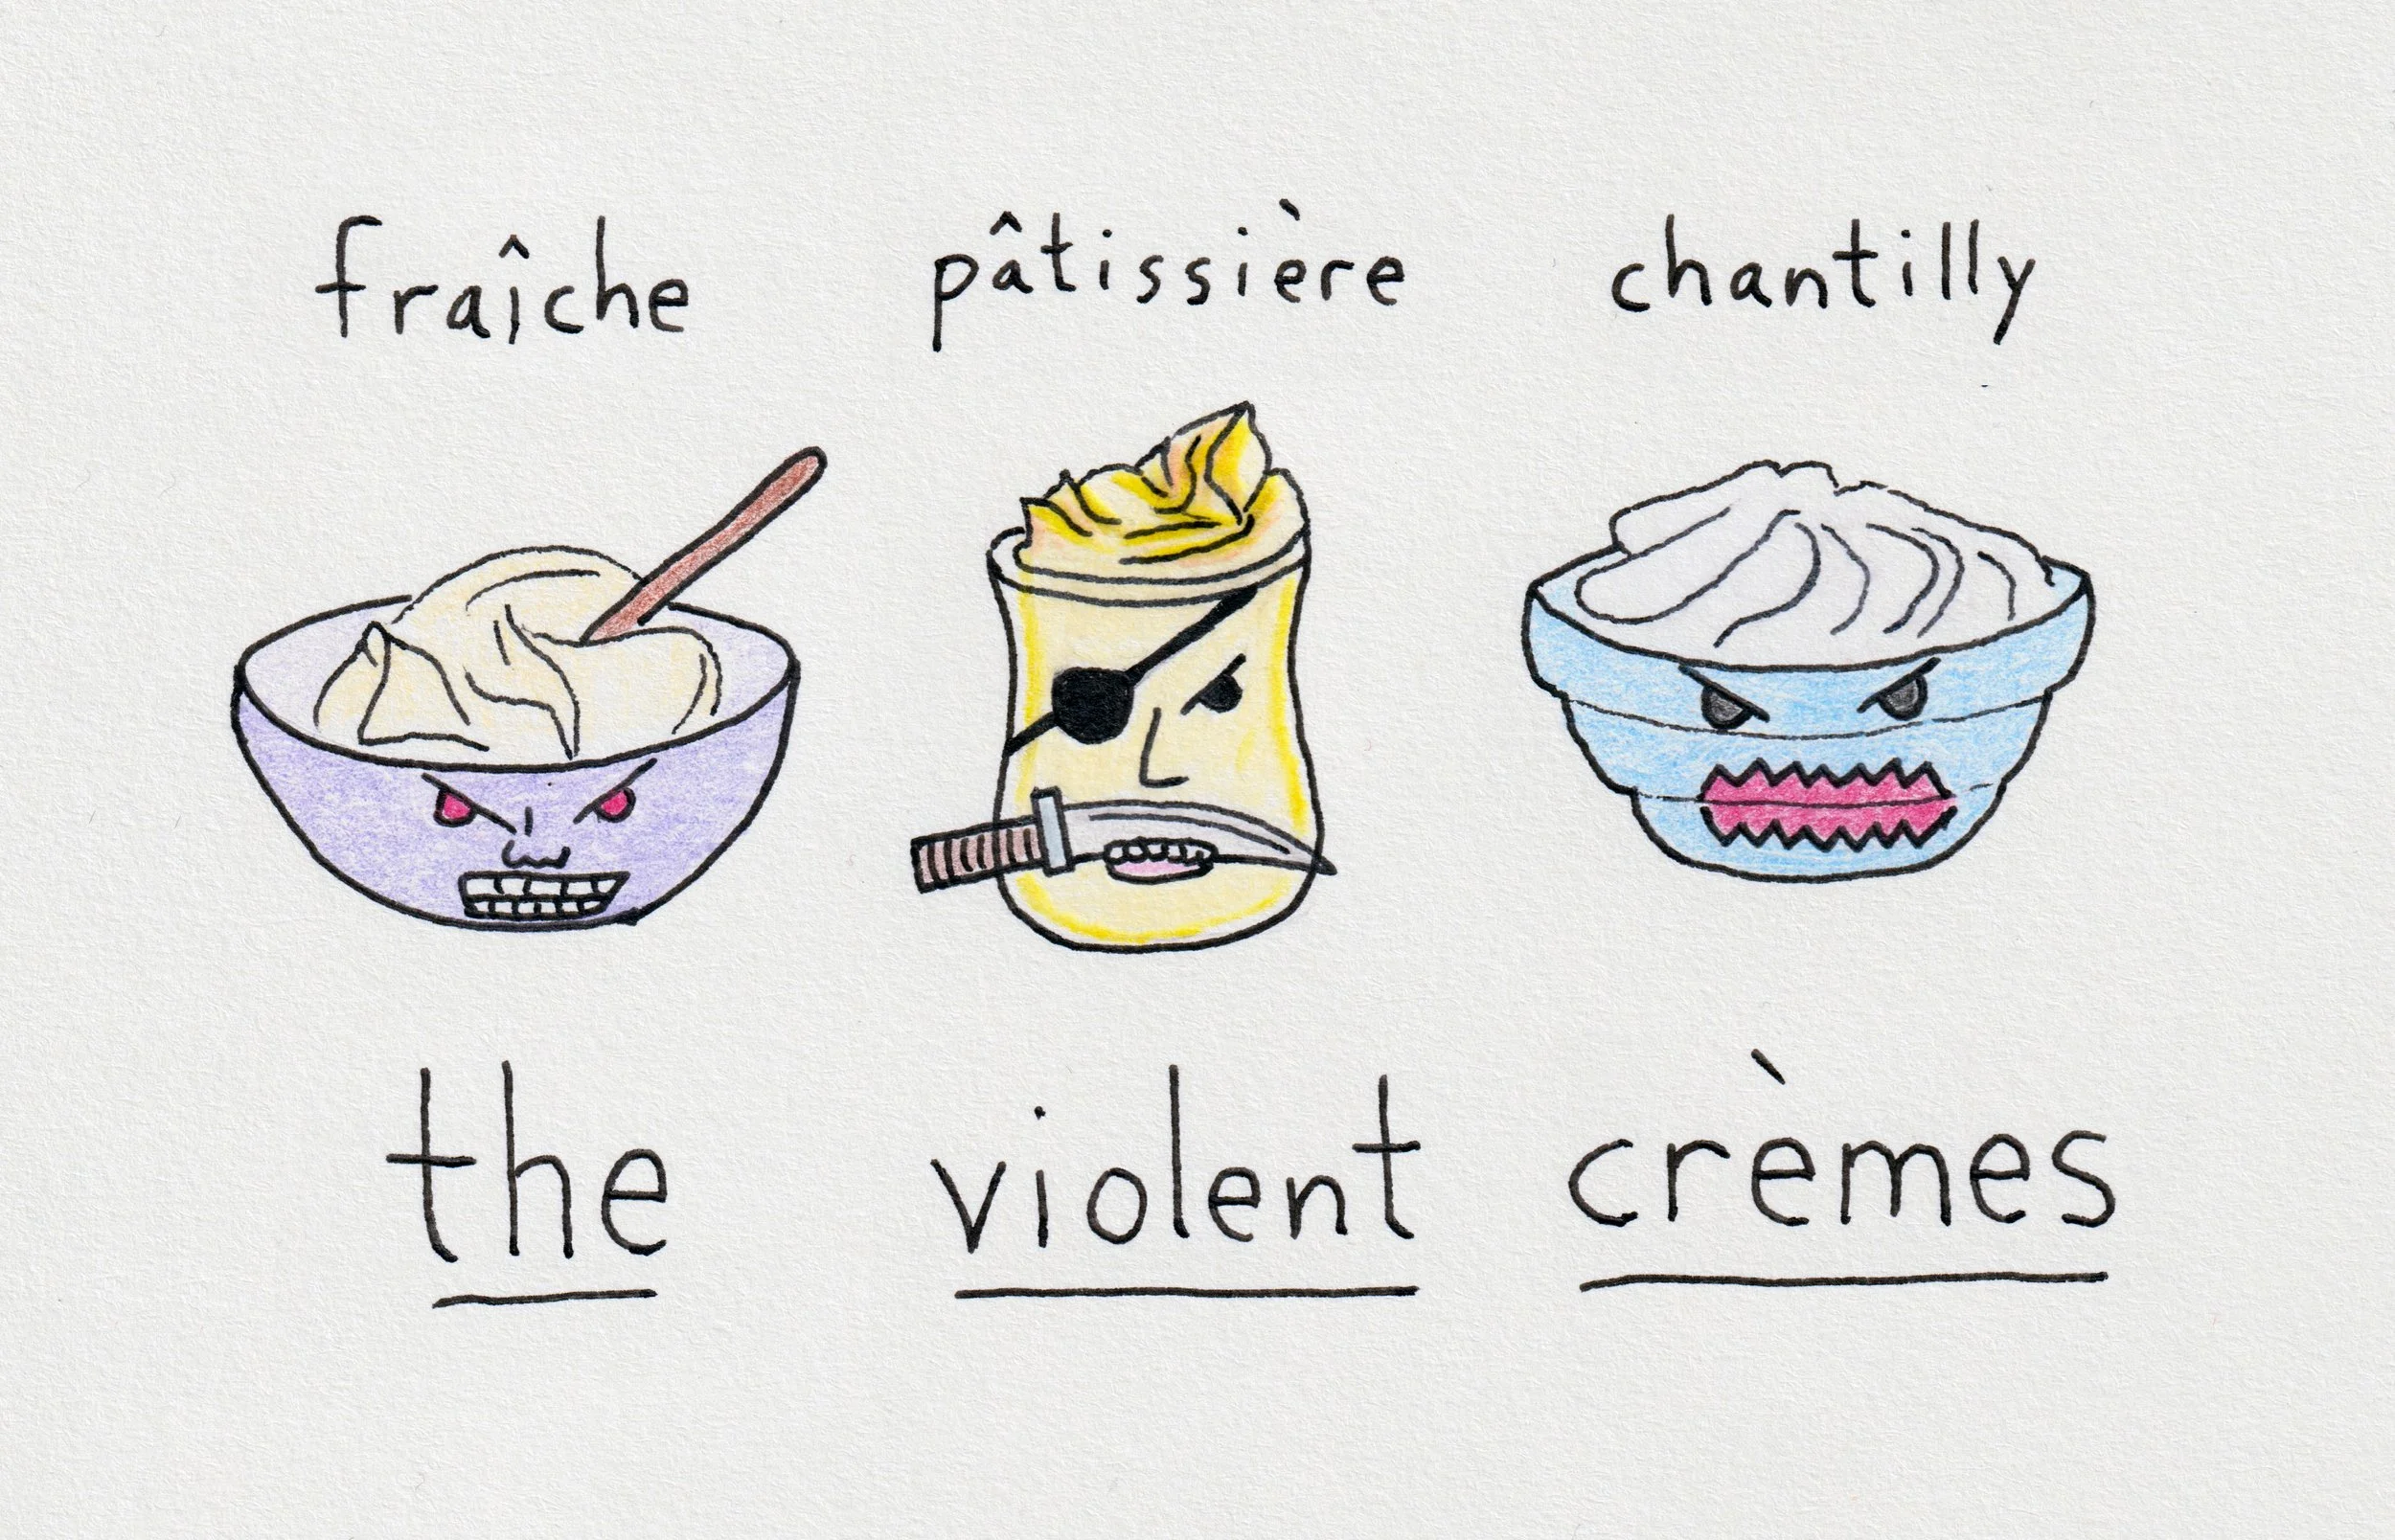 fraîche pâtissière chantilly
the violent crèmes